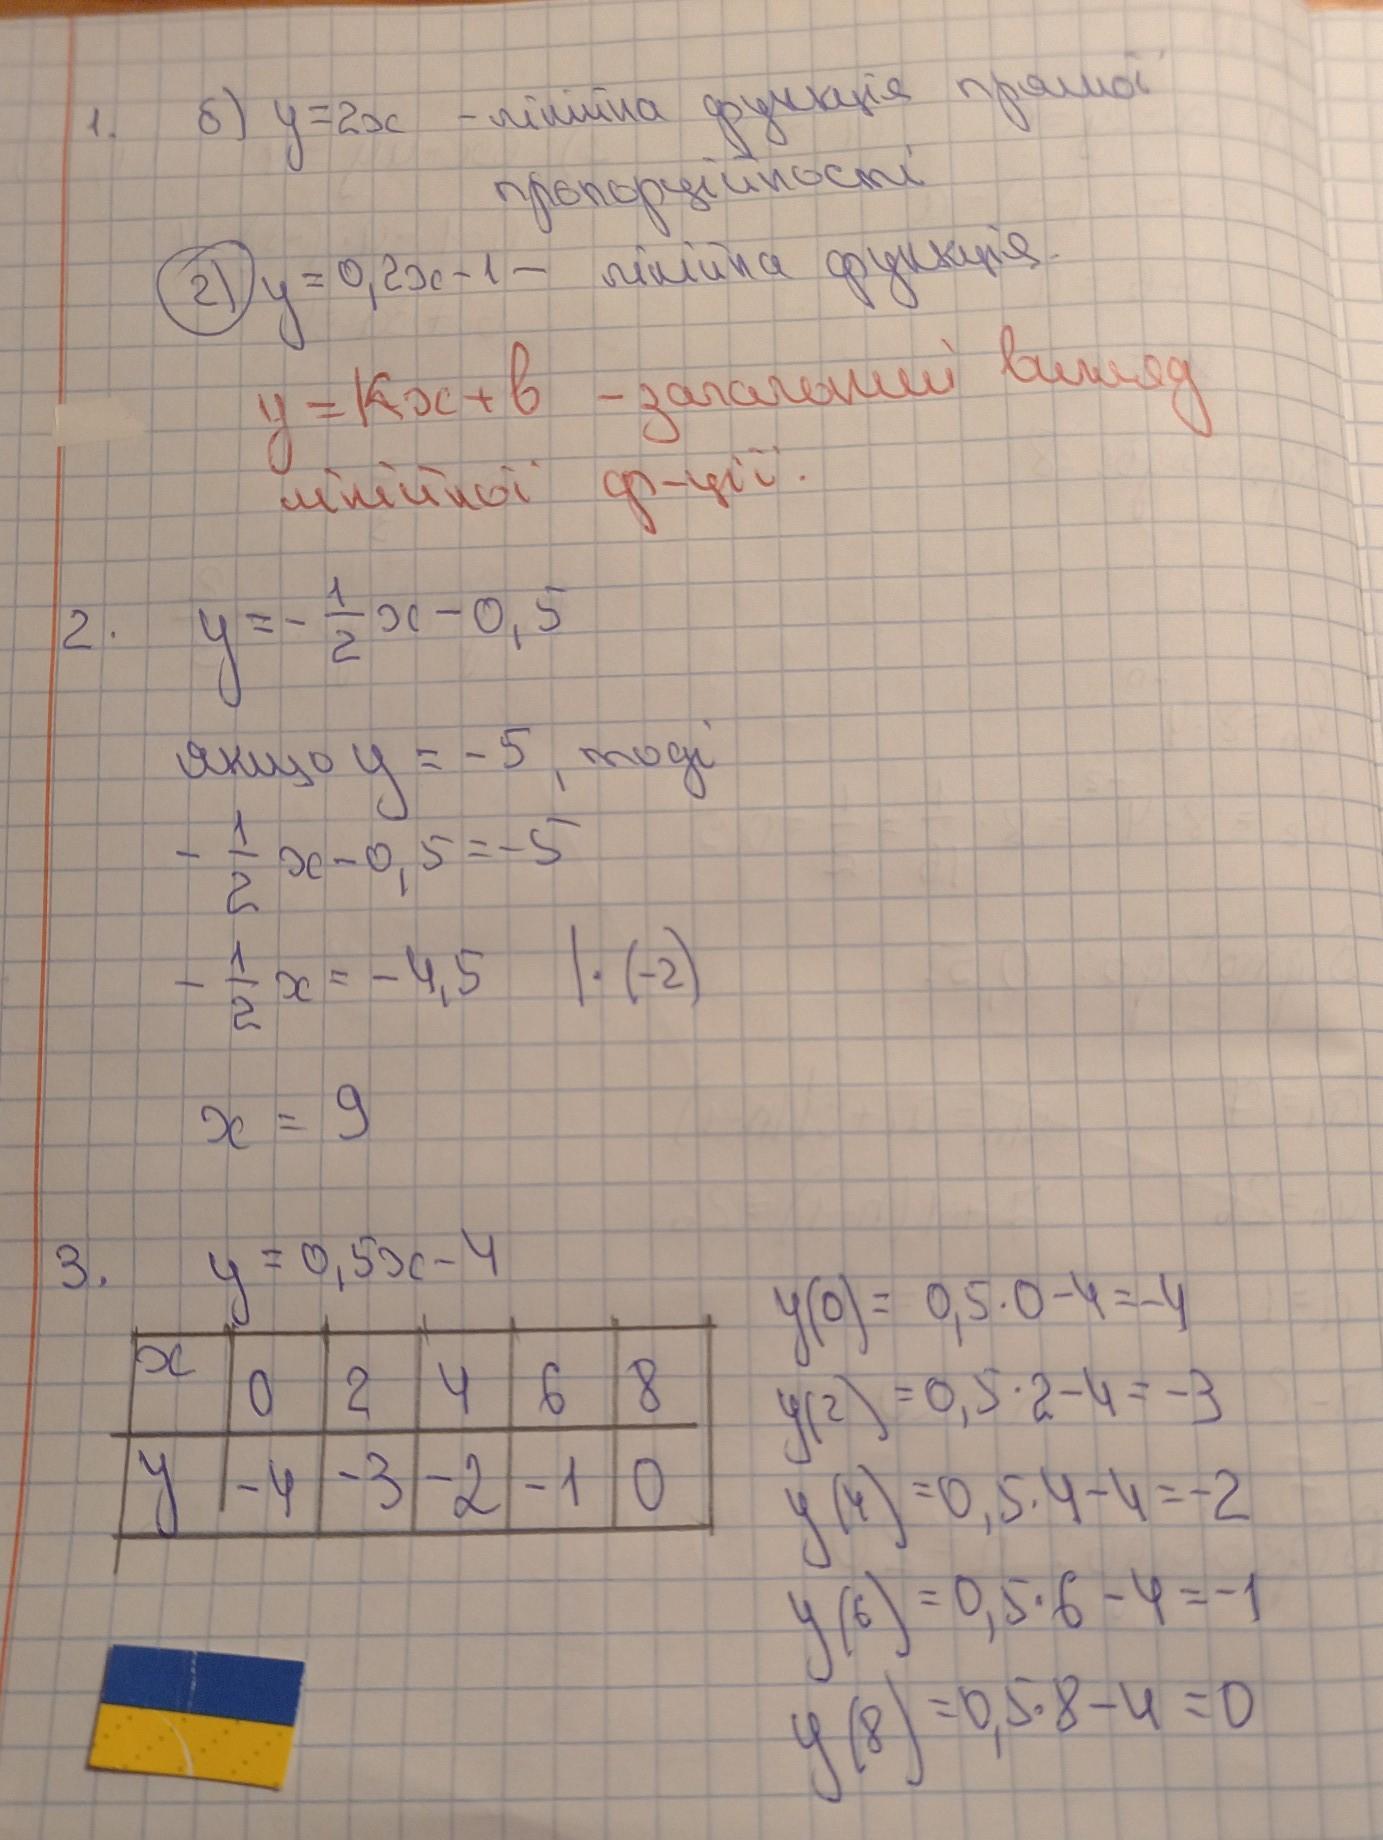 1. б) y=2x - лінійна функція прямої
пропорційності
г) y=0,2x-1 - лінійна функція.
y=kx+b - загальний вигляд
лінійної ф-ції.
2. y=-1/2x-0,5
якщо y=-5, тоді
-1/2x-0,5=-5
-1/2x=-4,5 |·(-2)
x = 9
3. y=0,5x-4
x 0 2 4 6 8
y -4 -3 -2 -1 0
y(0)= 0,5·0-4=-4
y(2)=0,5·2-4=-3
y(4)=0,5·4-4=-2
y(6)=0,5·6-4=-1
y(8)=0,5·8-4=0